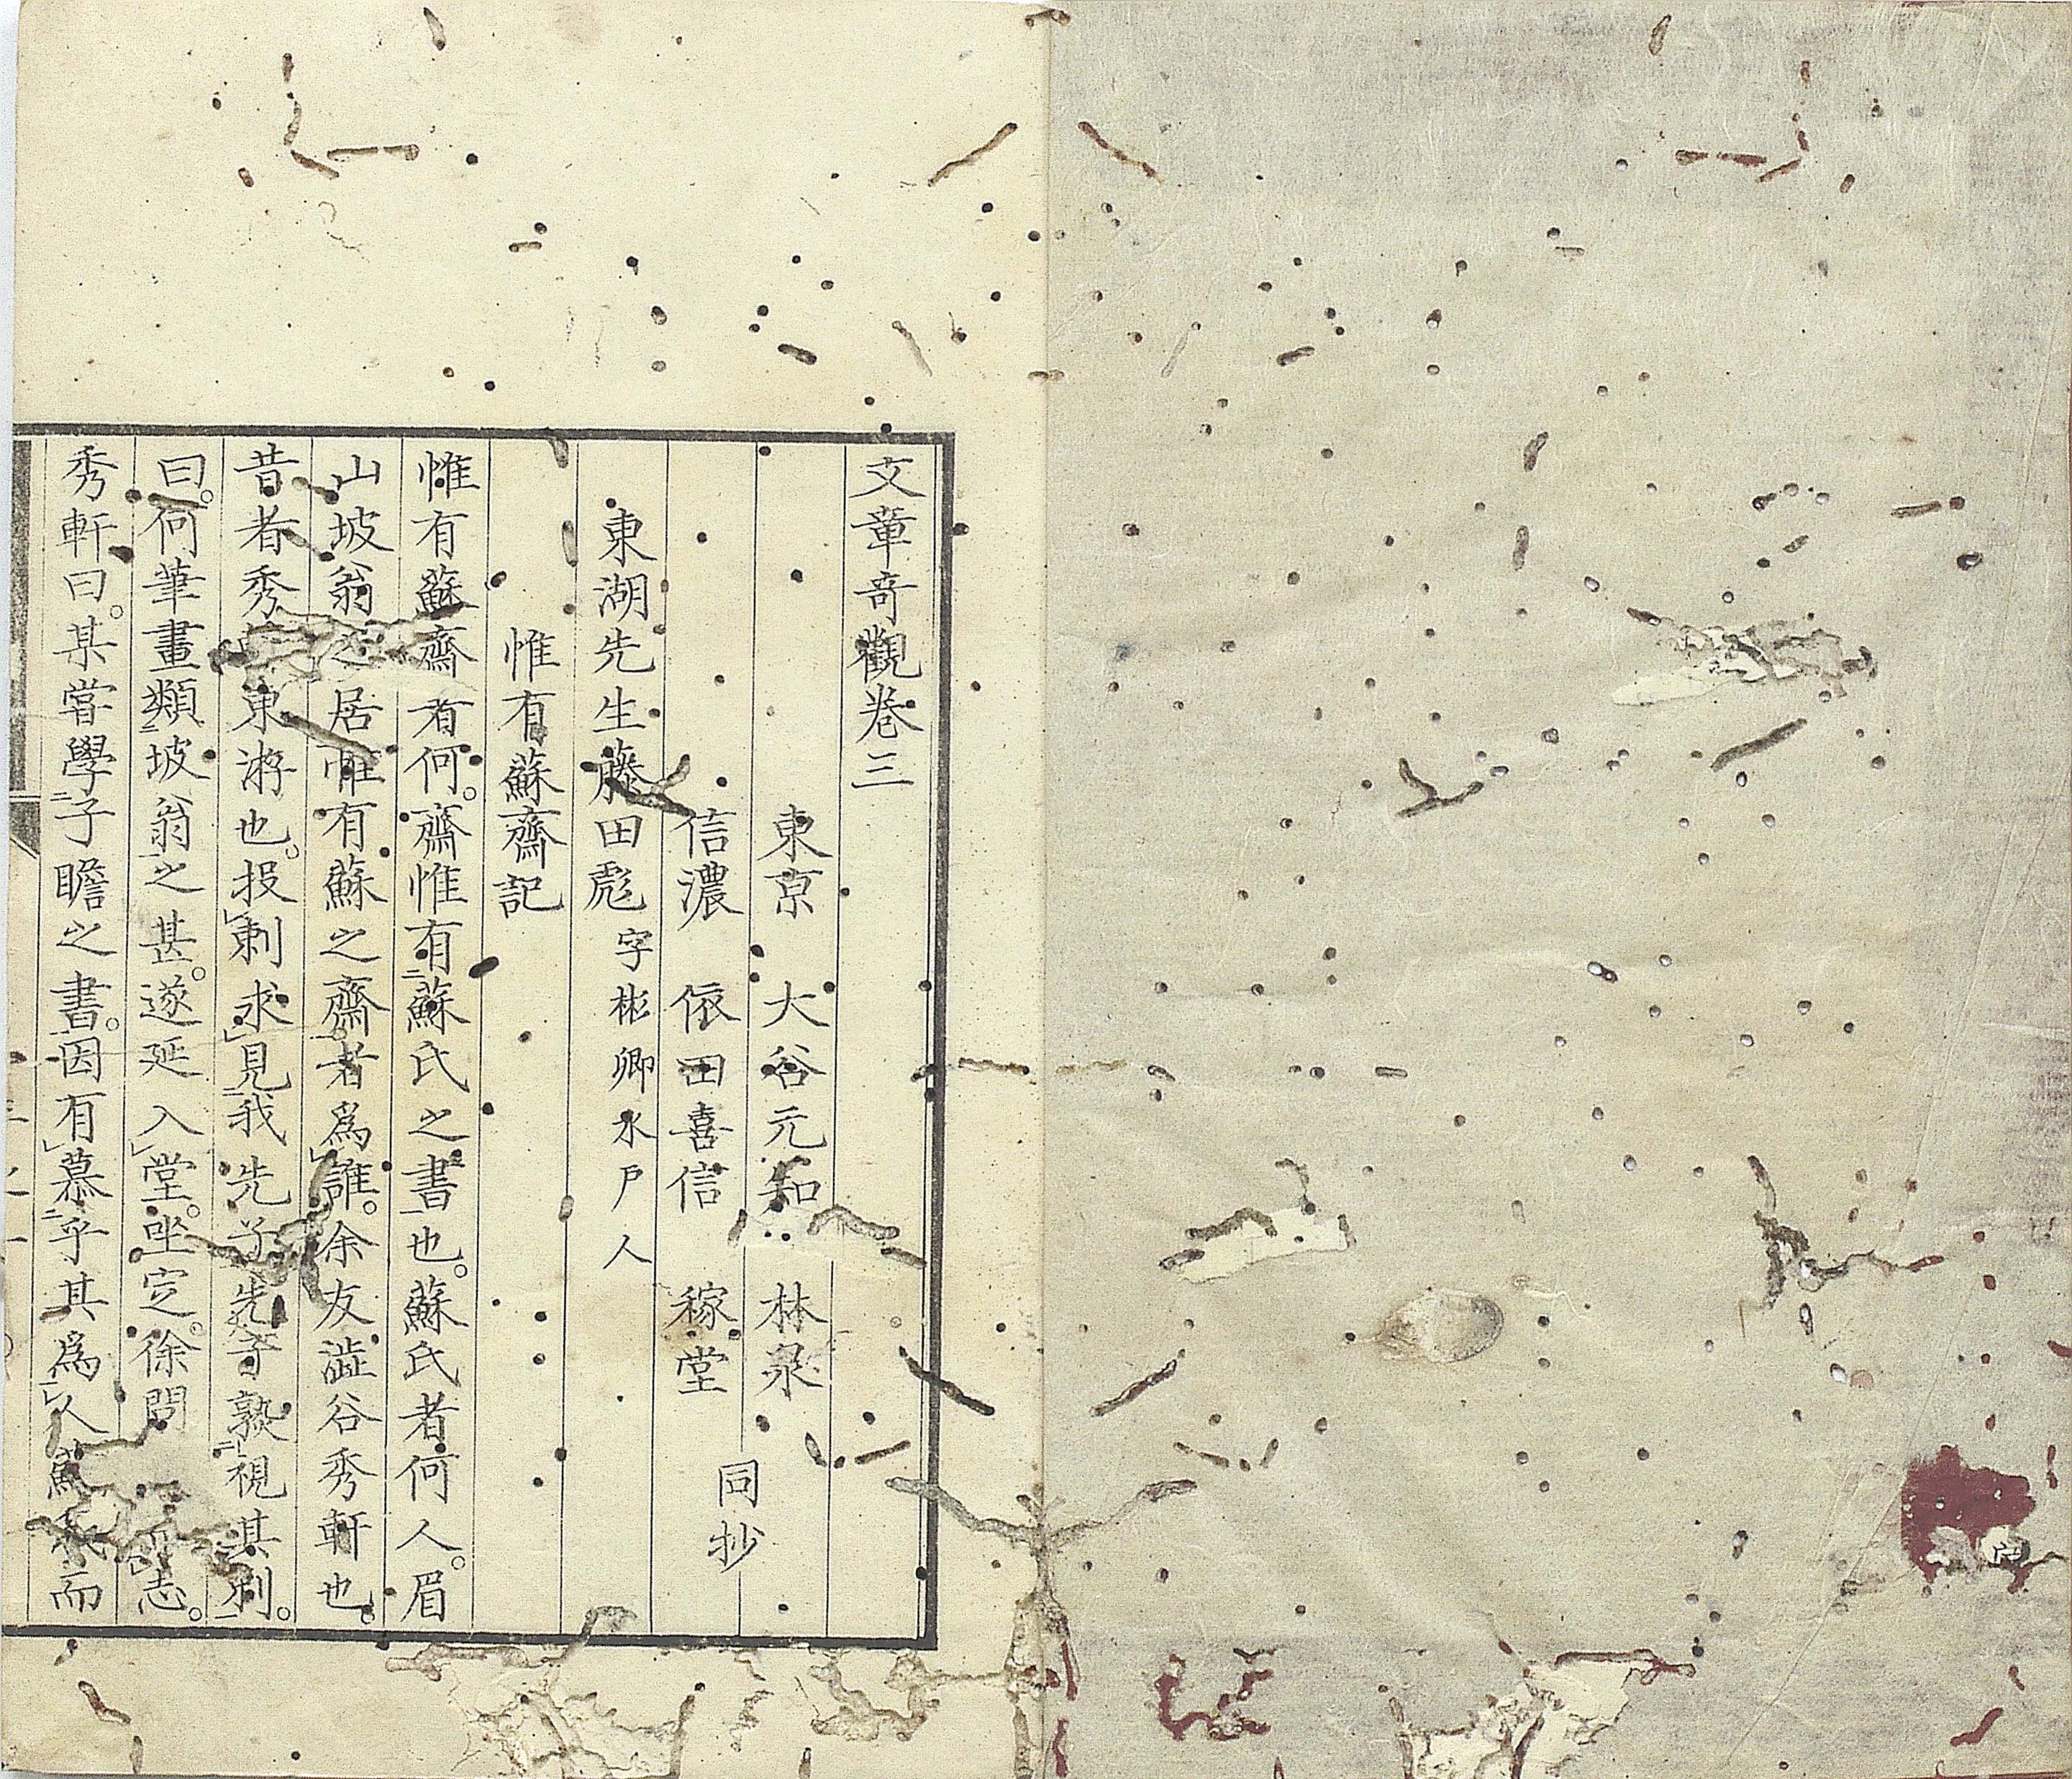 文章奇觀卷三
東京　大谷元知　林泉
信濃　依田喜信　稼堂
同抄
東湖先生藤田彪 字彬卿水戸人
惟有蘇齋記
惟有蘇齋者何。齋惟有蘇氏之書也。蘇氏者何人。眉
山坡翁之居惟有蘇之齋者爲誰。余友澁谷秀軒也。
昔者秀東游也。投刺求見我先子先子熟視其刺。
曰。何筆畫類坡翁之甚。遂延入堂。坐定。徐問志。
秀軒曰。某嘗學子瞻之書。因有慕乎其爲人而